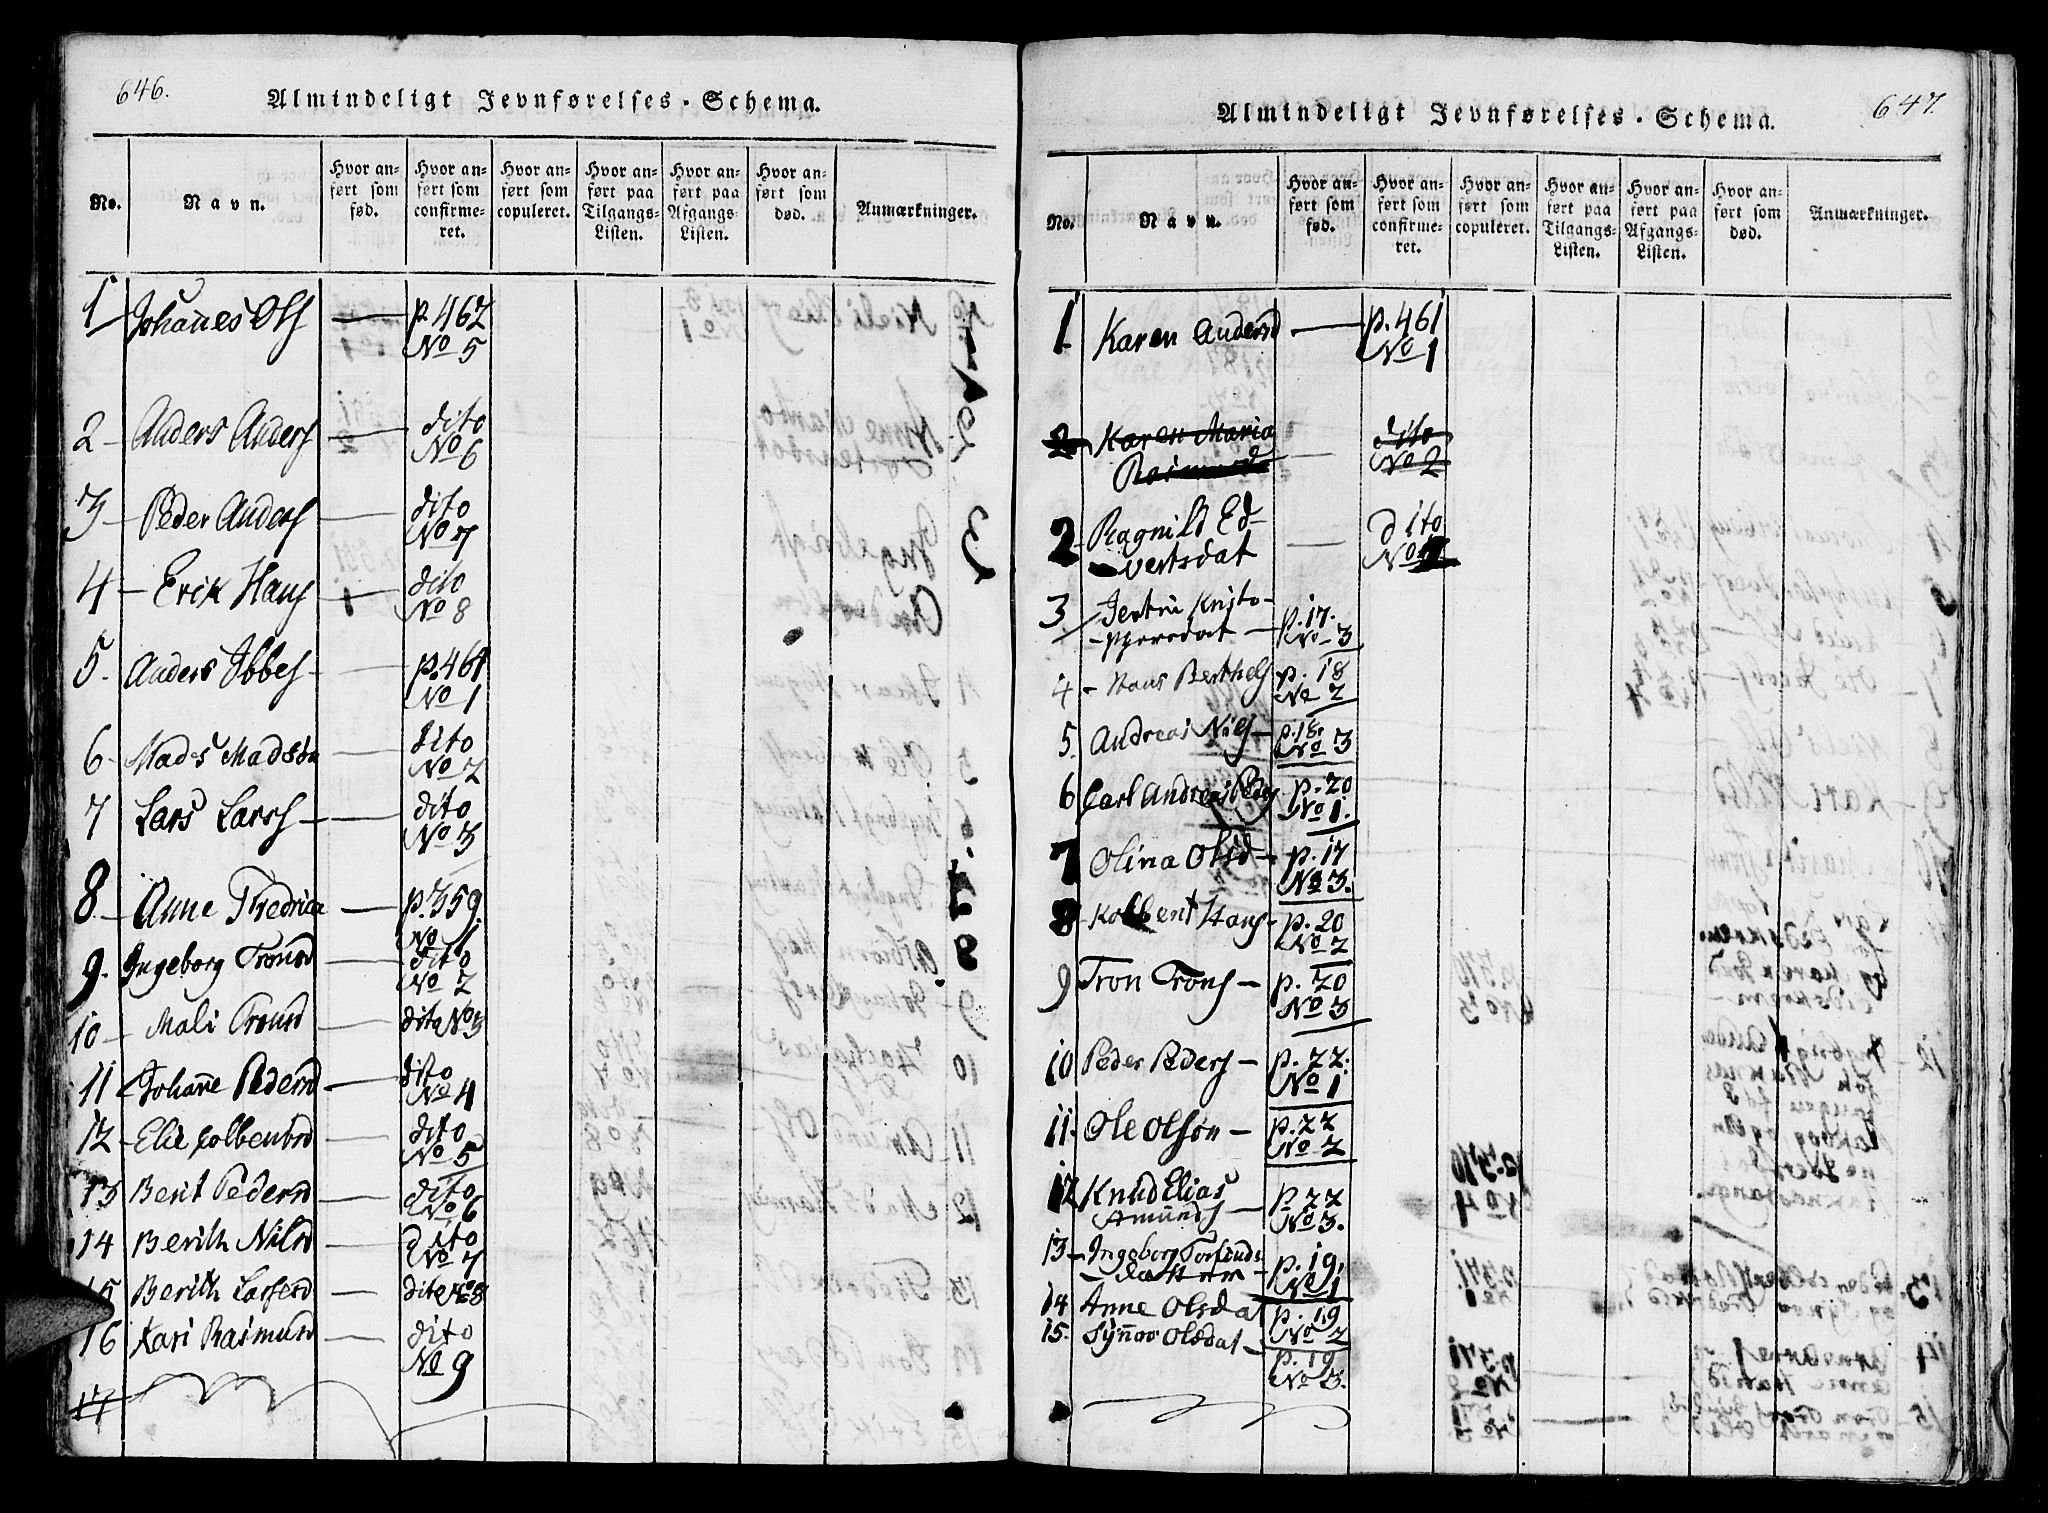 646.
Almindeligt Jevnførelses-Schema.
No.
Navn.
Hvor an-
ført som
fød.
Hvor an-
ført som
confirme-
ret.
Hvor an-
ført som
copuleret.
Hvor an-
ført paa
Tilgangs-
Listen.
Hvor an-
ført paa
Afgangs-
Listen.
Hvor an-
ført som
død.
Anmærkninger.
1 Johannes Ols — p. 467
No 5
2 - Anders Anders — dito
No 6
3 - Peder Anders — dito
No 7
4 - Erik Hans — dito
No 8
5. Anders Ibbes — p. 461
No 1
6 - Mads Madsøn — dito
No 2
7 Lars Lars — dito
No 3
8. - Anne Fredrica — p. 359.
No 1
9. Ingeborg Tronsd — dito
No 2
10 - Mali Tronsd — dito No 3
11 Johanne Pedersd — dito
No 4
12 - Elie Colbensd — dito
No 5
13 Berit Pedersd — dito
No 6
14 Berith Nilsd — dito
No 7
15 Berith Larsend — dito No 8
16 Kari Rasmusd — dito
No 9
17
Almindeligt Jevnførelses-Schema.
647.
No.
Navn.
Hvor an-
ført som
fød.
Hvor an-
ført som
confirme-
ret.
Hvor an-
ført som
copuleret.
Hvor an-
ført paa
Tilgangs-
Listen.
Hvor an-
ført paa
Afgangs-
Listen.
Hvor an-
ført som
død.
Anmærkninger.
1 Karen Andersd — p. 461
No 1
2 Karen Maria — dito
Rasmusd No 2
2 - Ragnild Ed- — dito
vertsdat No
3 Jertru Kristo- p. 17.
- phersdat — No - 3
4 - Hans Berthels p. 18
No 2
5. Andreas Nils — p. 18.
No 3
6 Carl Andreas Peders p. 20
No 1.
7 Olina Olsd — p. 17
No 3.
8 - Kolbent Hans - p. 20
No 2
9 Tron Trons — p. 20
No 3
10 Peder Peders — p. 22.
No 1
11. Ole Olsøn — p. 22
No 2
12 Knud Elias p. 22
Amunds — No 3.
13 - Ingeborg Torsteinds p. 19,
- datter — No 1
14. Anne Olsdat p. 19
No 2
15. Synnov Olsdat — p. 19
No 3.